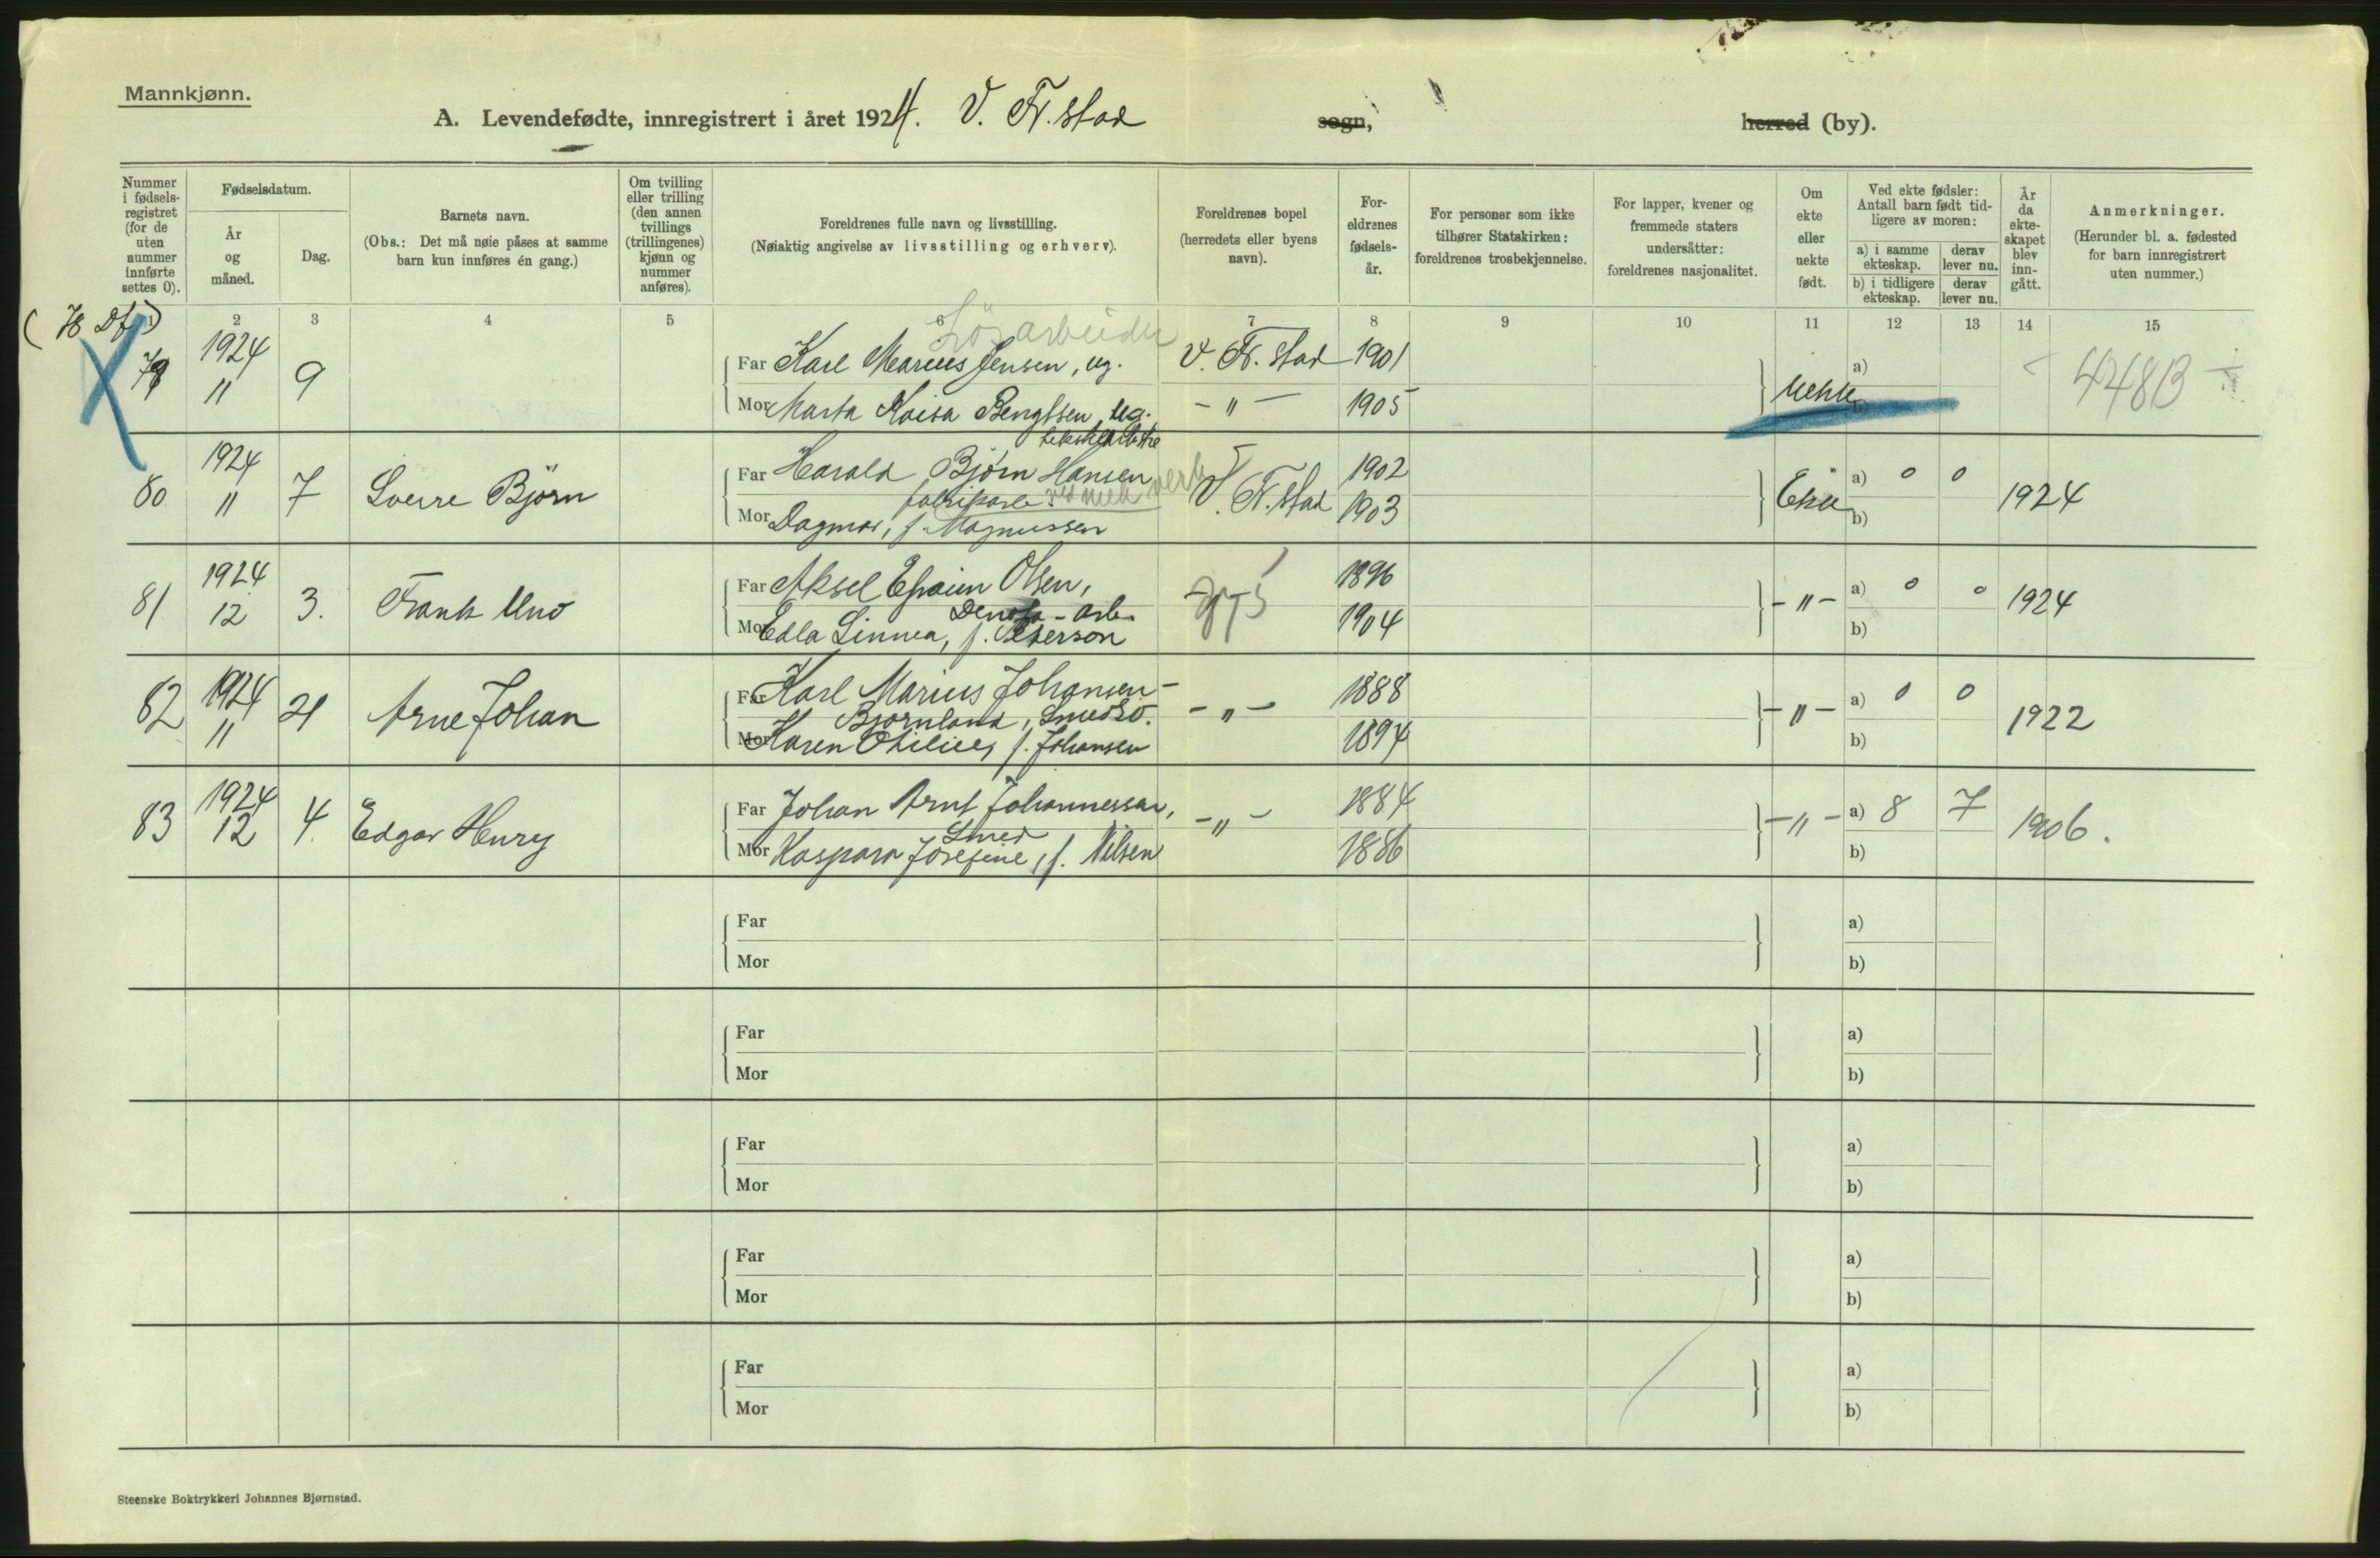 Mannkjønn.
A. Levendefødte, innregistrert i året 1924. V. Fr.stad sogn, herred (by).
Nummer i fødsels-registret (for de uten nummer innførte settes 0).
Fødselsdatum.
År og måned.
Dag.
Barnets navn.
(Obs.: Det må nøie påses at samme barn kun innføres én gang.)
Om tvilling eller trilling (den annen tvillings (trillingenes) kjønn og nummer anføres).
Foreldrenes fulle navn og livsstilling.
(Nøiaktig angivelse av livsstilling og erhverv).
Foreldrenes bopel (herredets eller byens navn).
For-eldrenes fødsels-år.
For personer som ikke tilhører Statskirken: foreldrenes trosbekjennelse.
For lapper, kvener og fremmede staters undersåtter: foreldrenes nasjonalitet.
Om ekte eller uekte født.
Ved ekte fødsler: Antall barn født tid-ligere av moren:
a) i samme ekteskap.
derav lever nu.
b) i tidligere ekteskap.
derav lever nu.
År da ekte-skapet blev inn-gått.
Anmerkninger.
(Herunder bl. a. fødested for barn innregistrert uten nummer.)
1 2 3 4 5 6 7 8 9 10 11 12 13 14 15
Løsarbeider
79 1924 11 9
Far Karl Marius Jensen, ug. V. Fr.stad 1901
Mor Marta Kaisa Bengtsen, ug. - " - 1905
Uekte a) b) 448B
80 1924 11 7 Sverre Bjørn
Far Harald Bjørn Hansen V. Fr.stad 1902
fabrikarb. ved mek verk
Mor Dagmar, f. Magnussen 1903
Ekte a) 0 0 b) 1924
81 1924 12 3. Frank Uno
Far Aksel Efraim Olsen, 1896
Denofa-arb.
Mor Edla Linnea, f. Peterson 1904
- " - a) 0 0 b) 1924
82 1924 11 21 Arne Johan
Far Karl Marius Johansen- 1888
Bjørnland, Smed
- " -
Mor Karen Otilie, f. Johansen 1894
- " - a) 0 0 b) 1922
83 1924 12 4. Edgar Henry
Far Johan Arnt Johannessen, - " - 1884
Smed
Mor Kaspara Josefine, f. Nilsen 1886
- " - a) 8 7 b) 1906.
Far a)
Mor b)
Far a)
Mor b)
Far a)
Mor b)
Far a)
Mor b)
Far a)
Mor b)
Steenske Boktrykkeri Johannes Bjørnstad.